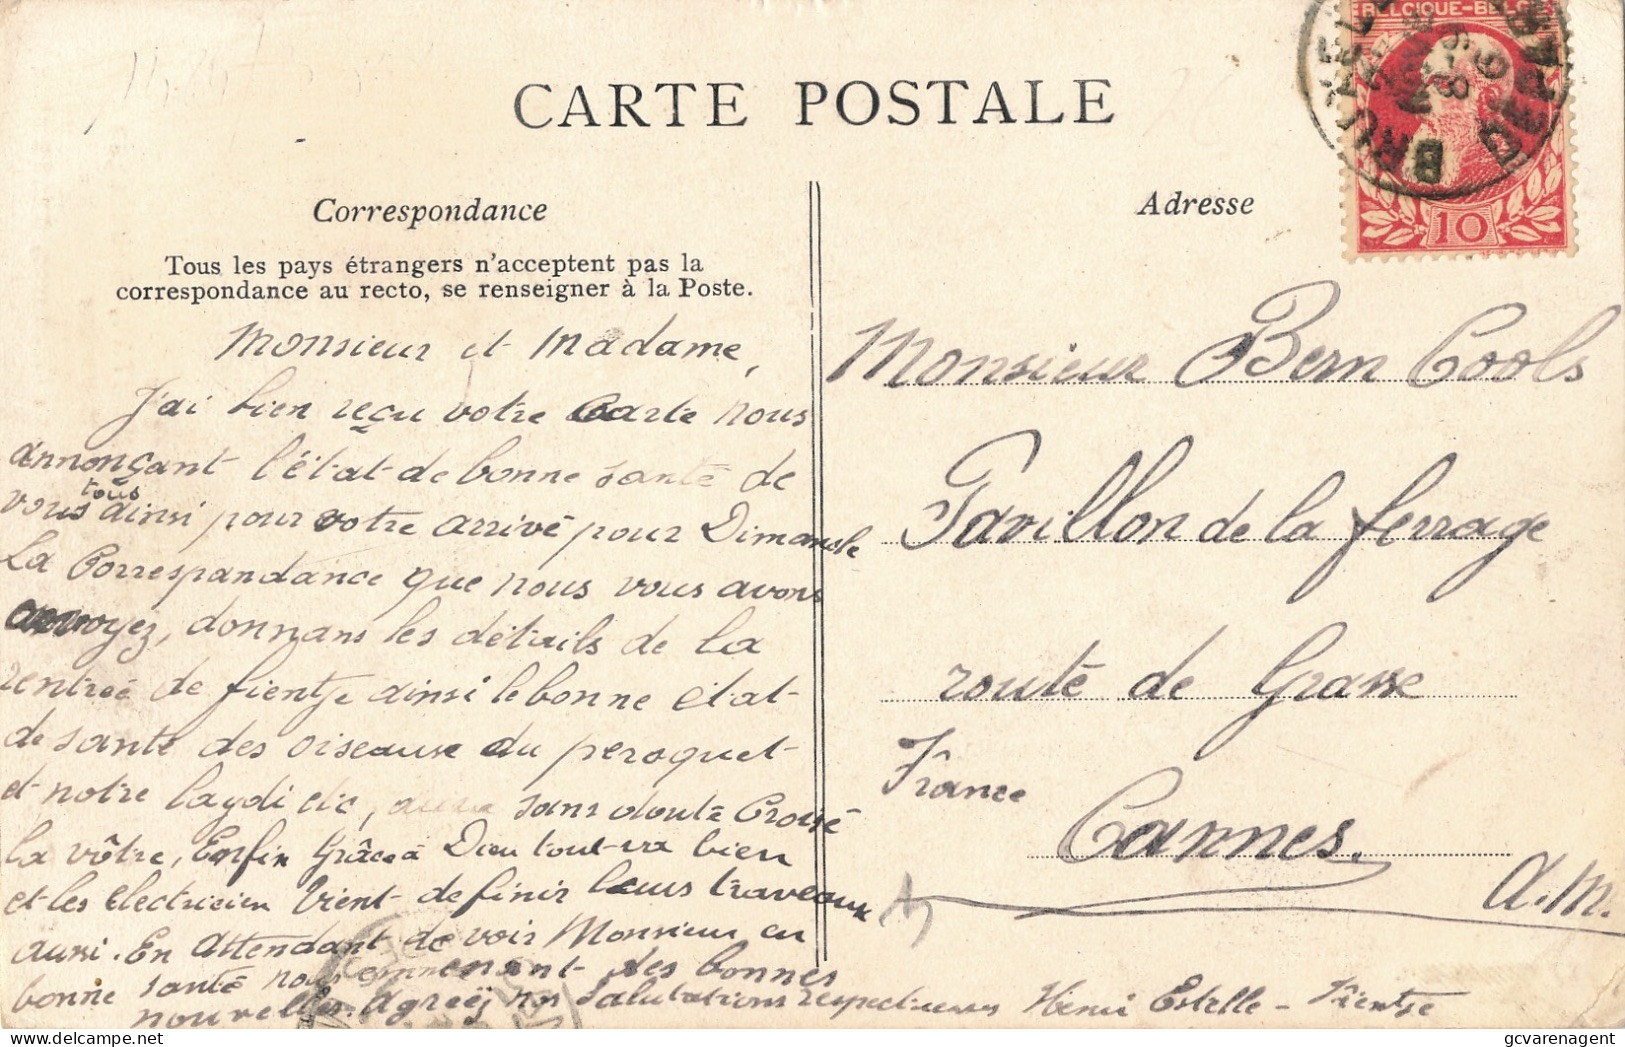 BELGIQUE-BELG
BRUXELLES
10
CARTE POSTALE
Correspondance
Adresse
Tous les pays étrangers n'acceptent pas la
correspondance au recto, se renseigner à la Poste.
Monsieur et Madame,
J'ai bien reçu votre Carte nous
annonçant l'état de bonne santé de
vous tous ainsi pour votre arrivé pour Dimanche
La Correspandance que nous vous avons
envoyez, donnans les détails de la
rentreé de fientje ainsi le bonne etat
de santé des oiseaux du peroquet
et notre laydi etc, aussi sans doute Croisé
la vôtre, Enfin Grâce à Dieu tout va bien
et les Electricien vient de finir leurs traveaux
aussi. En Attendant de voir Monsieur en
bonne santé nous emmenant des bonnes
nouvelles. Agreéz nos Salutations respectueuses Henri Estelle - Fientje
Monsieur Bern Cools
Pavillon de la ferrage
route de Grasse
France
Cannes.
A.M.
gcvarenagent